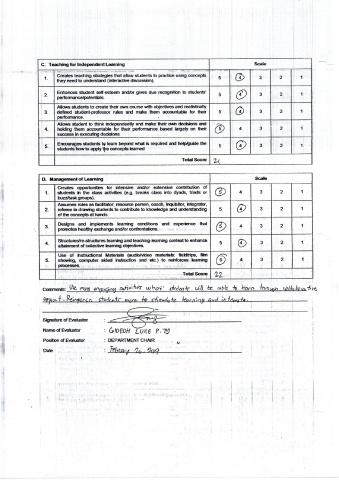 C. Teaching for Independent Learning Scale
1. Creates teaching strategies that allow students to practice using concepts they need to understand (interactive discussion) 5 4 3 2 1
2. Enhances student self-esteem and/or gives due recognition to students' performance/potentials. 5 4 3 2 1
3. Allows students to create their own course with objectives and realistically defined student-professor rules and make them accountable for their performance. 5 4 3 2 1
4. Allows student to think independently and make their own decisions and holding them accountable for their performance based largely on their success in executing decisions 5 4 3 2 1
5. Encourages students to learn beyond what is required and help/guide the students how to apply the concepts learned 5 4 3 2 1
Total Score 21
D. Management of Learning Scale
1. Creates opportunities for intensive and/or extensive contribution of students in the class activities (e.g. breaks class into dyads, triads or buzz/task groups). 5 4 3 2 1
2. Assumes roles as facilitator, resource person, coach, inquisitor, integrator, referee in drawing students to contribute to knowledge and understanding of the concepts at hands. 5 4 3 2 1
3. Designs and implements learning conditions and experience that promotes healthy exchange and/or confrontations. 5 4 3 2 1
4. Structures/re-structures learning and teaching-learning context to enhance attainment of collective learning objectives. 5 4 3 2 1
5. Use of Instructional Materials (audio/video materials: fieldtrips, film showing, computer aided instruction and etc.) to reinforces learning processes. 5 4 3 2 1
Total Score 22
Comments: Use more engaging activities where students will be able to learn through collaborative
students more to stimulate learning and
Signature of Evaluator :
Name of Evaluator : GIDEON LUKE P. TY
Position of Evaluator : DEPARTMENT CHAIR
Date : February 26, 2019